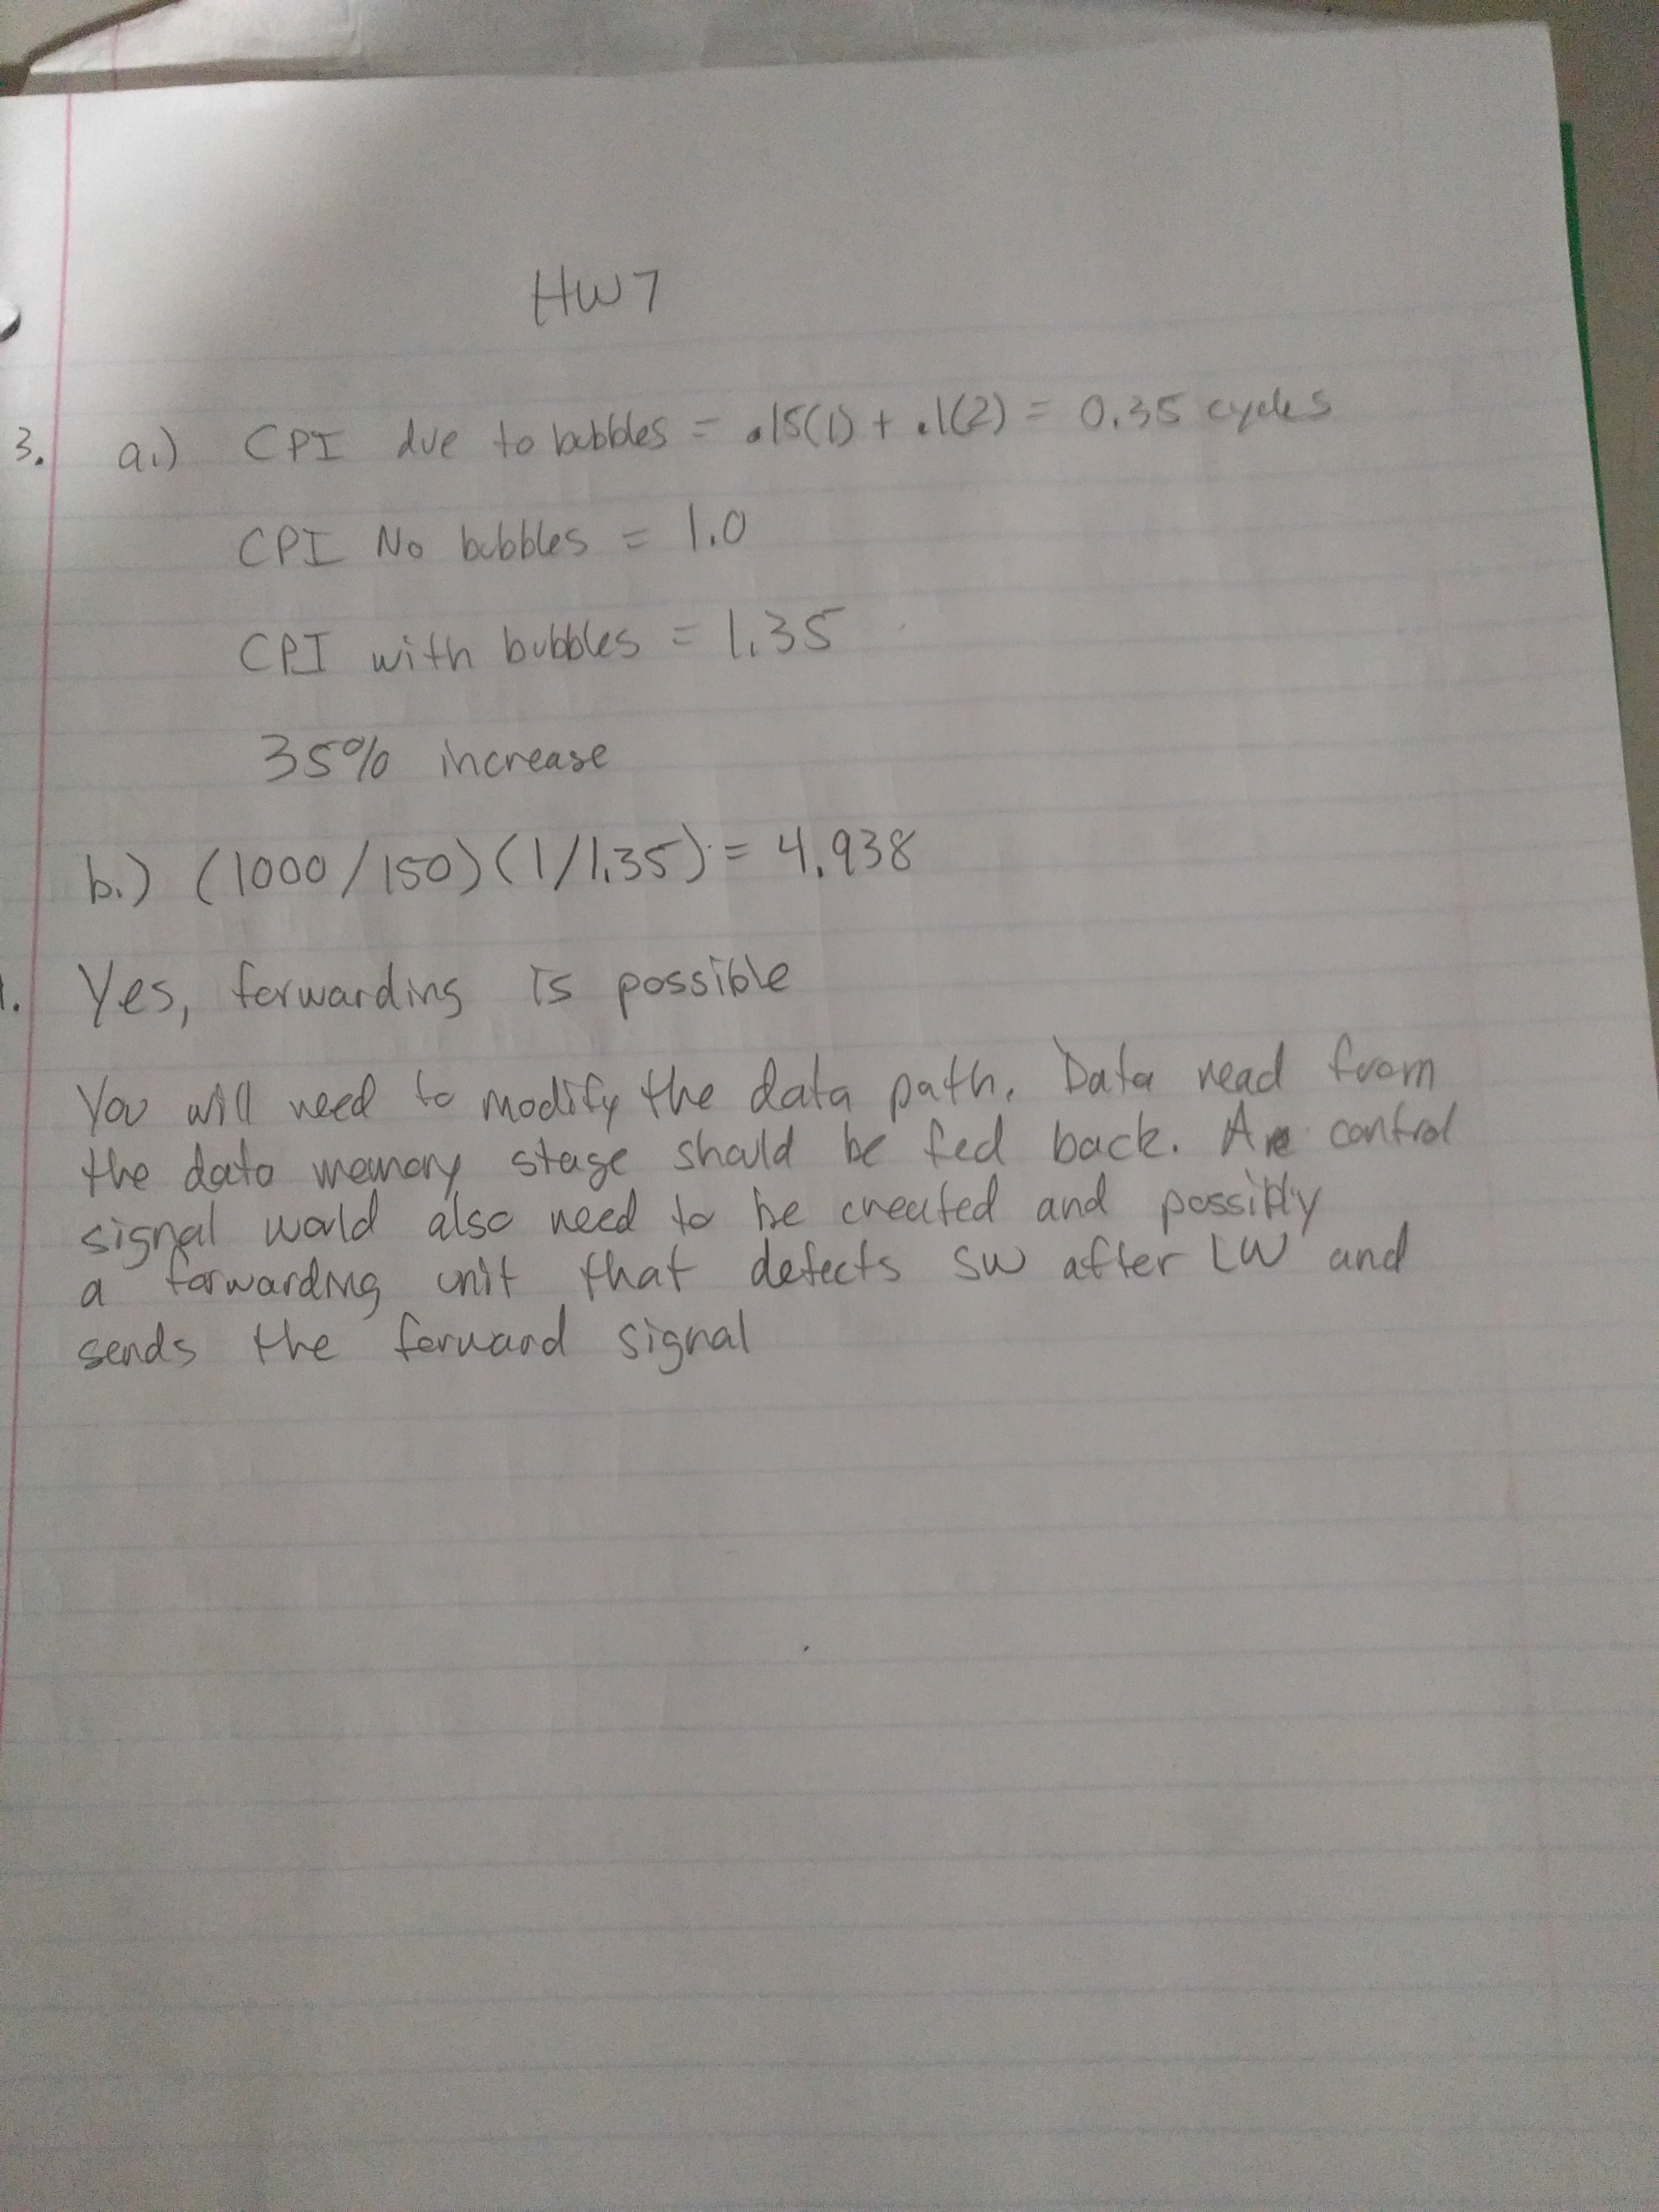 HW7
3. a.) CPI due to bubbles = .15(1) + .1(2) = 0.35 cycles
CPI No bubbles = 1.0
CPI with bubbles = 1.35
35% increase
b.) (1000/150)(1/1.35) = 4.938
. Yes, forwarding is possible
You will need to modify the data path. Data read from
the data memory stage should be fed back. A control
signal would also need to be created and possibly
a forwarding unit that detects SW after LW and
sends the forward signal